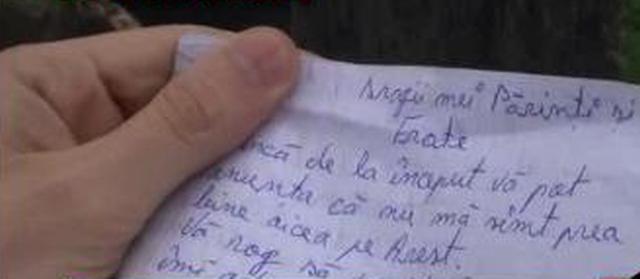 Dragii mei Părinți și
Frate
Încă de la început vă pot
anunța că nu mă simt prea
bine aicea pe Arest.
Vă rog să
îmi